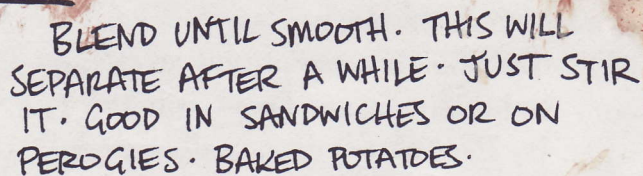 BLEND UNTIL SMOOTH. THIS WILL
SEPARATE AFTER A WHILE. JUST STIR
IT. GOOD IN SANDWICHES OR ON
PEROGIES. BAKED POTATOES.